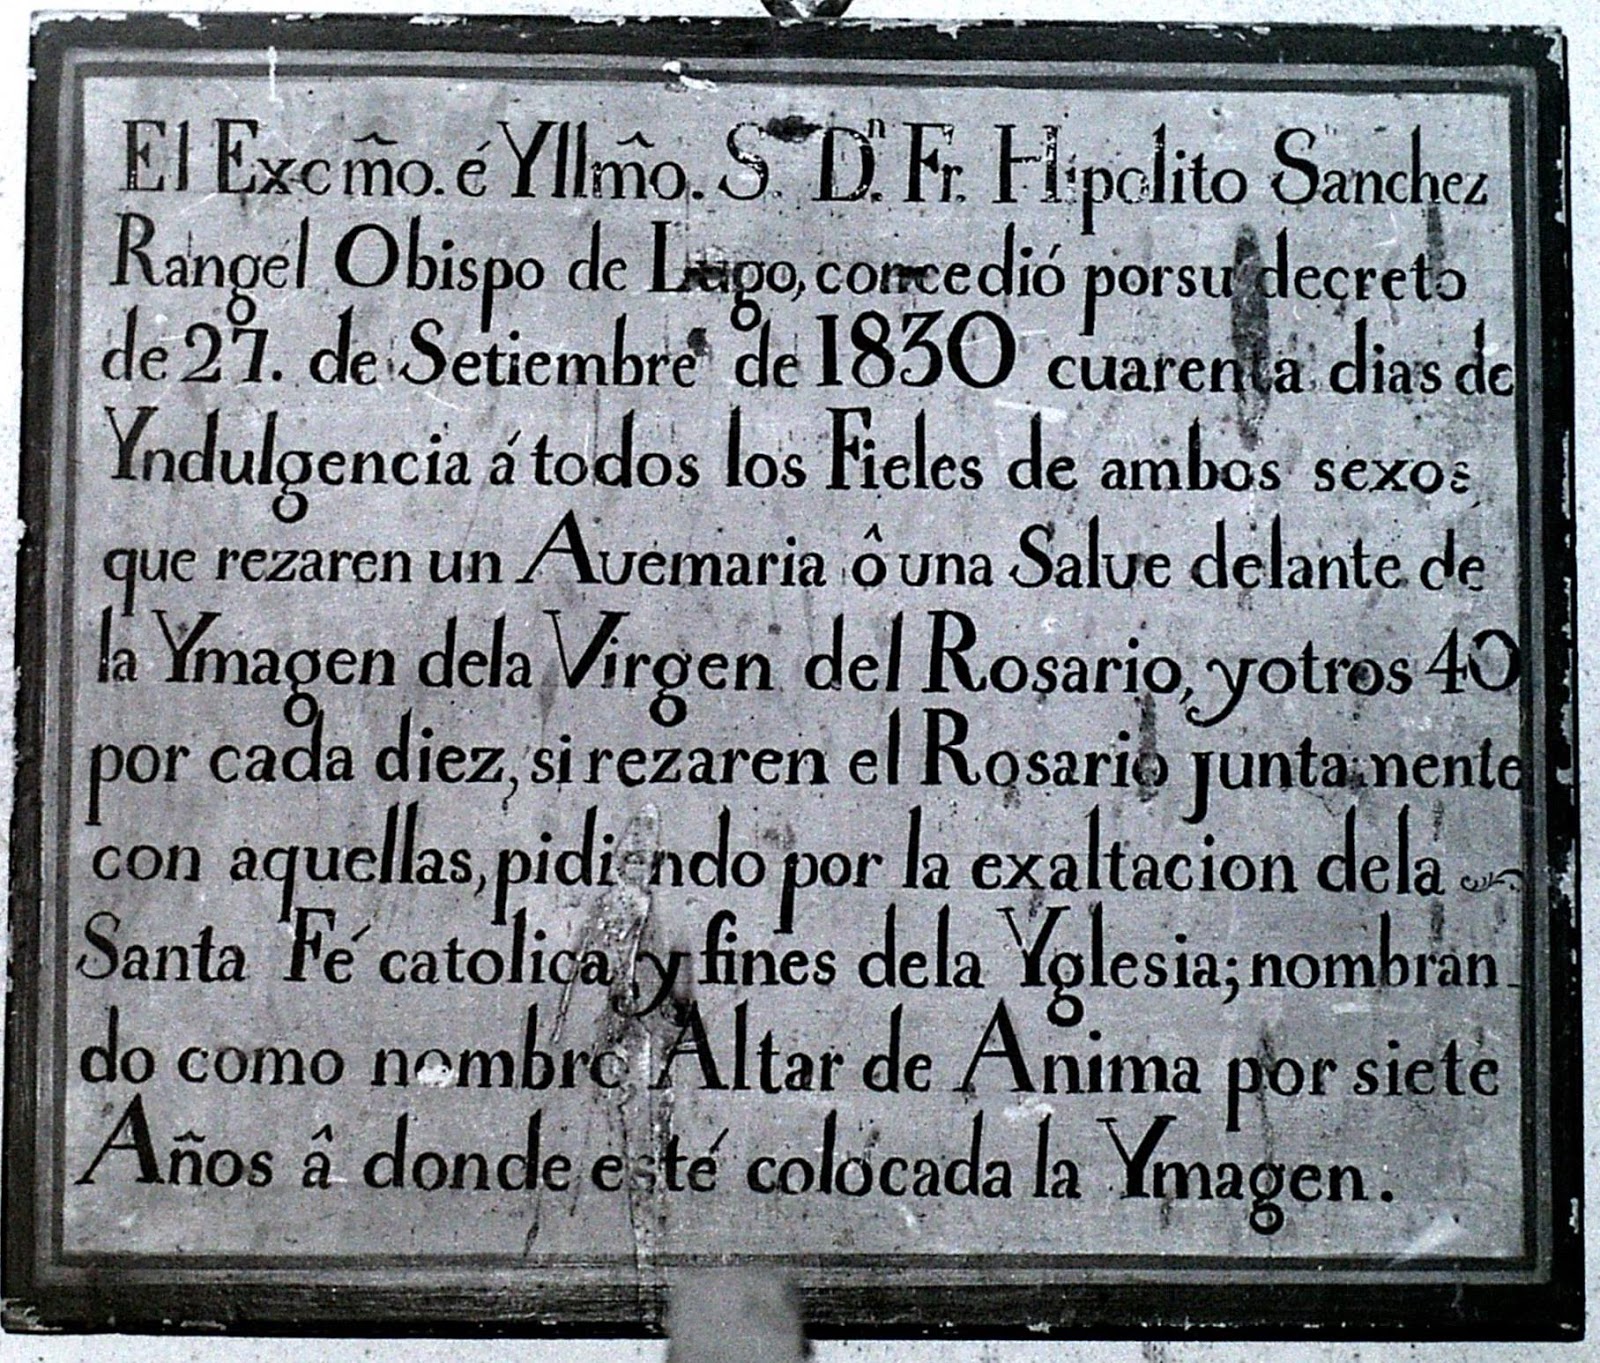 El Excm̂o. é Yllm̂o. S. Dⁿ. Fr. Hipolito Sanchez
Rangel Obispo de Lugo, concedió porsu decreto
de 27. de Setiembre de 1830 cuarenta dias de
Yndulgencia á todos los Fieles de ambos sexos
que rezaren un Auemaria ô una Salue delante de
la Ymagen dela Virgen del Rosario, y otros 40
por cada diez, si rezaren el Rosario juntamente
con aquellas, pidiendo por la exaltacion dela
Santa Fé catolica y fines dela Yglesia; nombran
do como nombro Altar de Anima por siete
Años â donde esté colocada la Ymagen.